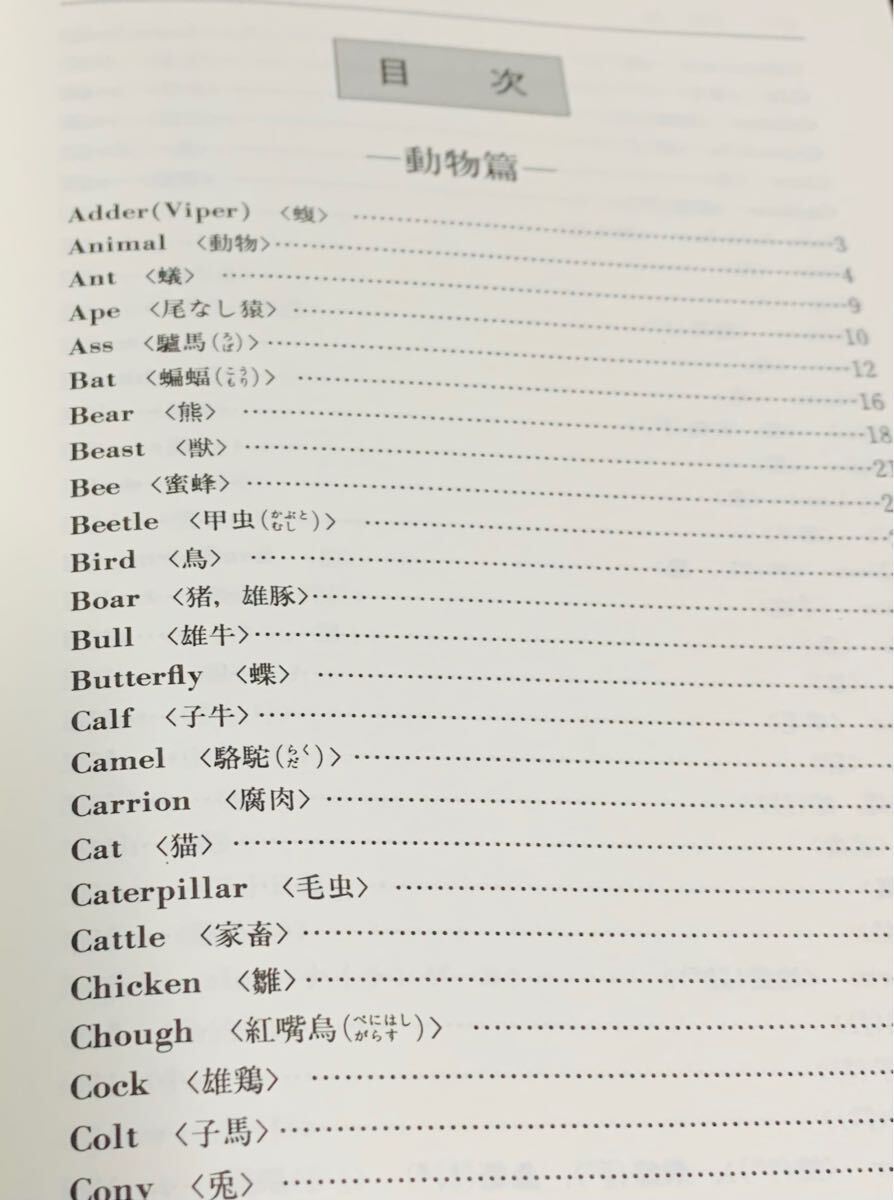 目 次
—動物篇—
Adder(Viper) 〈蝮〉 ……3
Animal 〈動物〉……4
Ant 〈蟻〉 ……9
Ape 〈尾なし猿〉 ……10
Ass 〈驢馬(ろば)〉……12
Bat 〈蝙蝠(こうもり)〉 ……16
Bear 〈熊〉 ……18
Beast 〈獣〉 ……21
Bee 〈蜜蜂〉 ……2
Beetle 〈甲虫(かぶとむし)〉 ……
Bird 〈鳥〉 ……
Boar 〈猪，雄豚〉……
Bull 〈雄牛〉……
Butterfly 〈蝶〉 ……
Calf 〈子牛〉……
Camel 〈駱駝(らくだ)〉……
Carrion 〈腐肉〉 ……
Cat 〈猫〉 ……
Caterpillar 〈毛虫〉 ……
Cattle 〈家畜〉……
Chicken 〈雛〉……
Chough 〈紅嘴烏(べにはしがらす)〉 ……
Cock 〈雄鶏〉 ……
Colt 〈子馬〉……
Cony 〈兎〉 ……